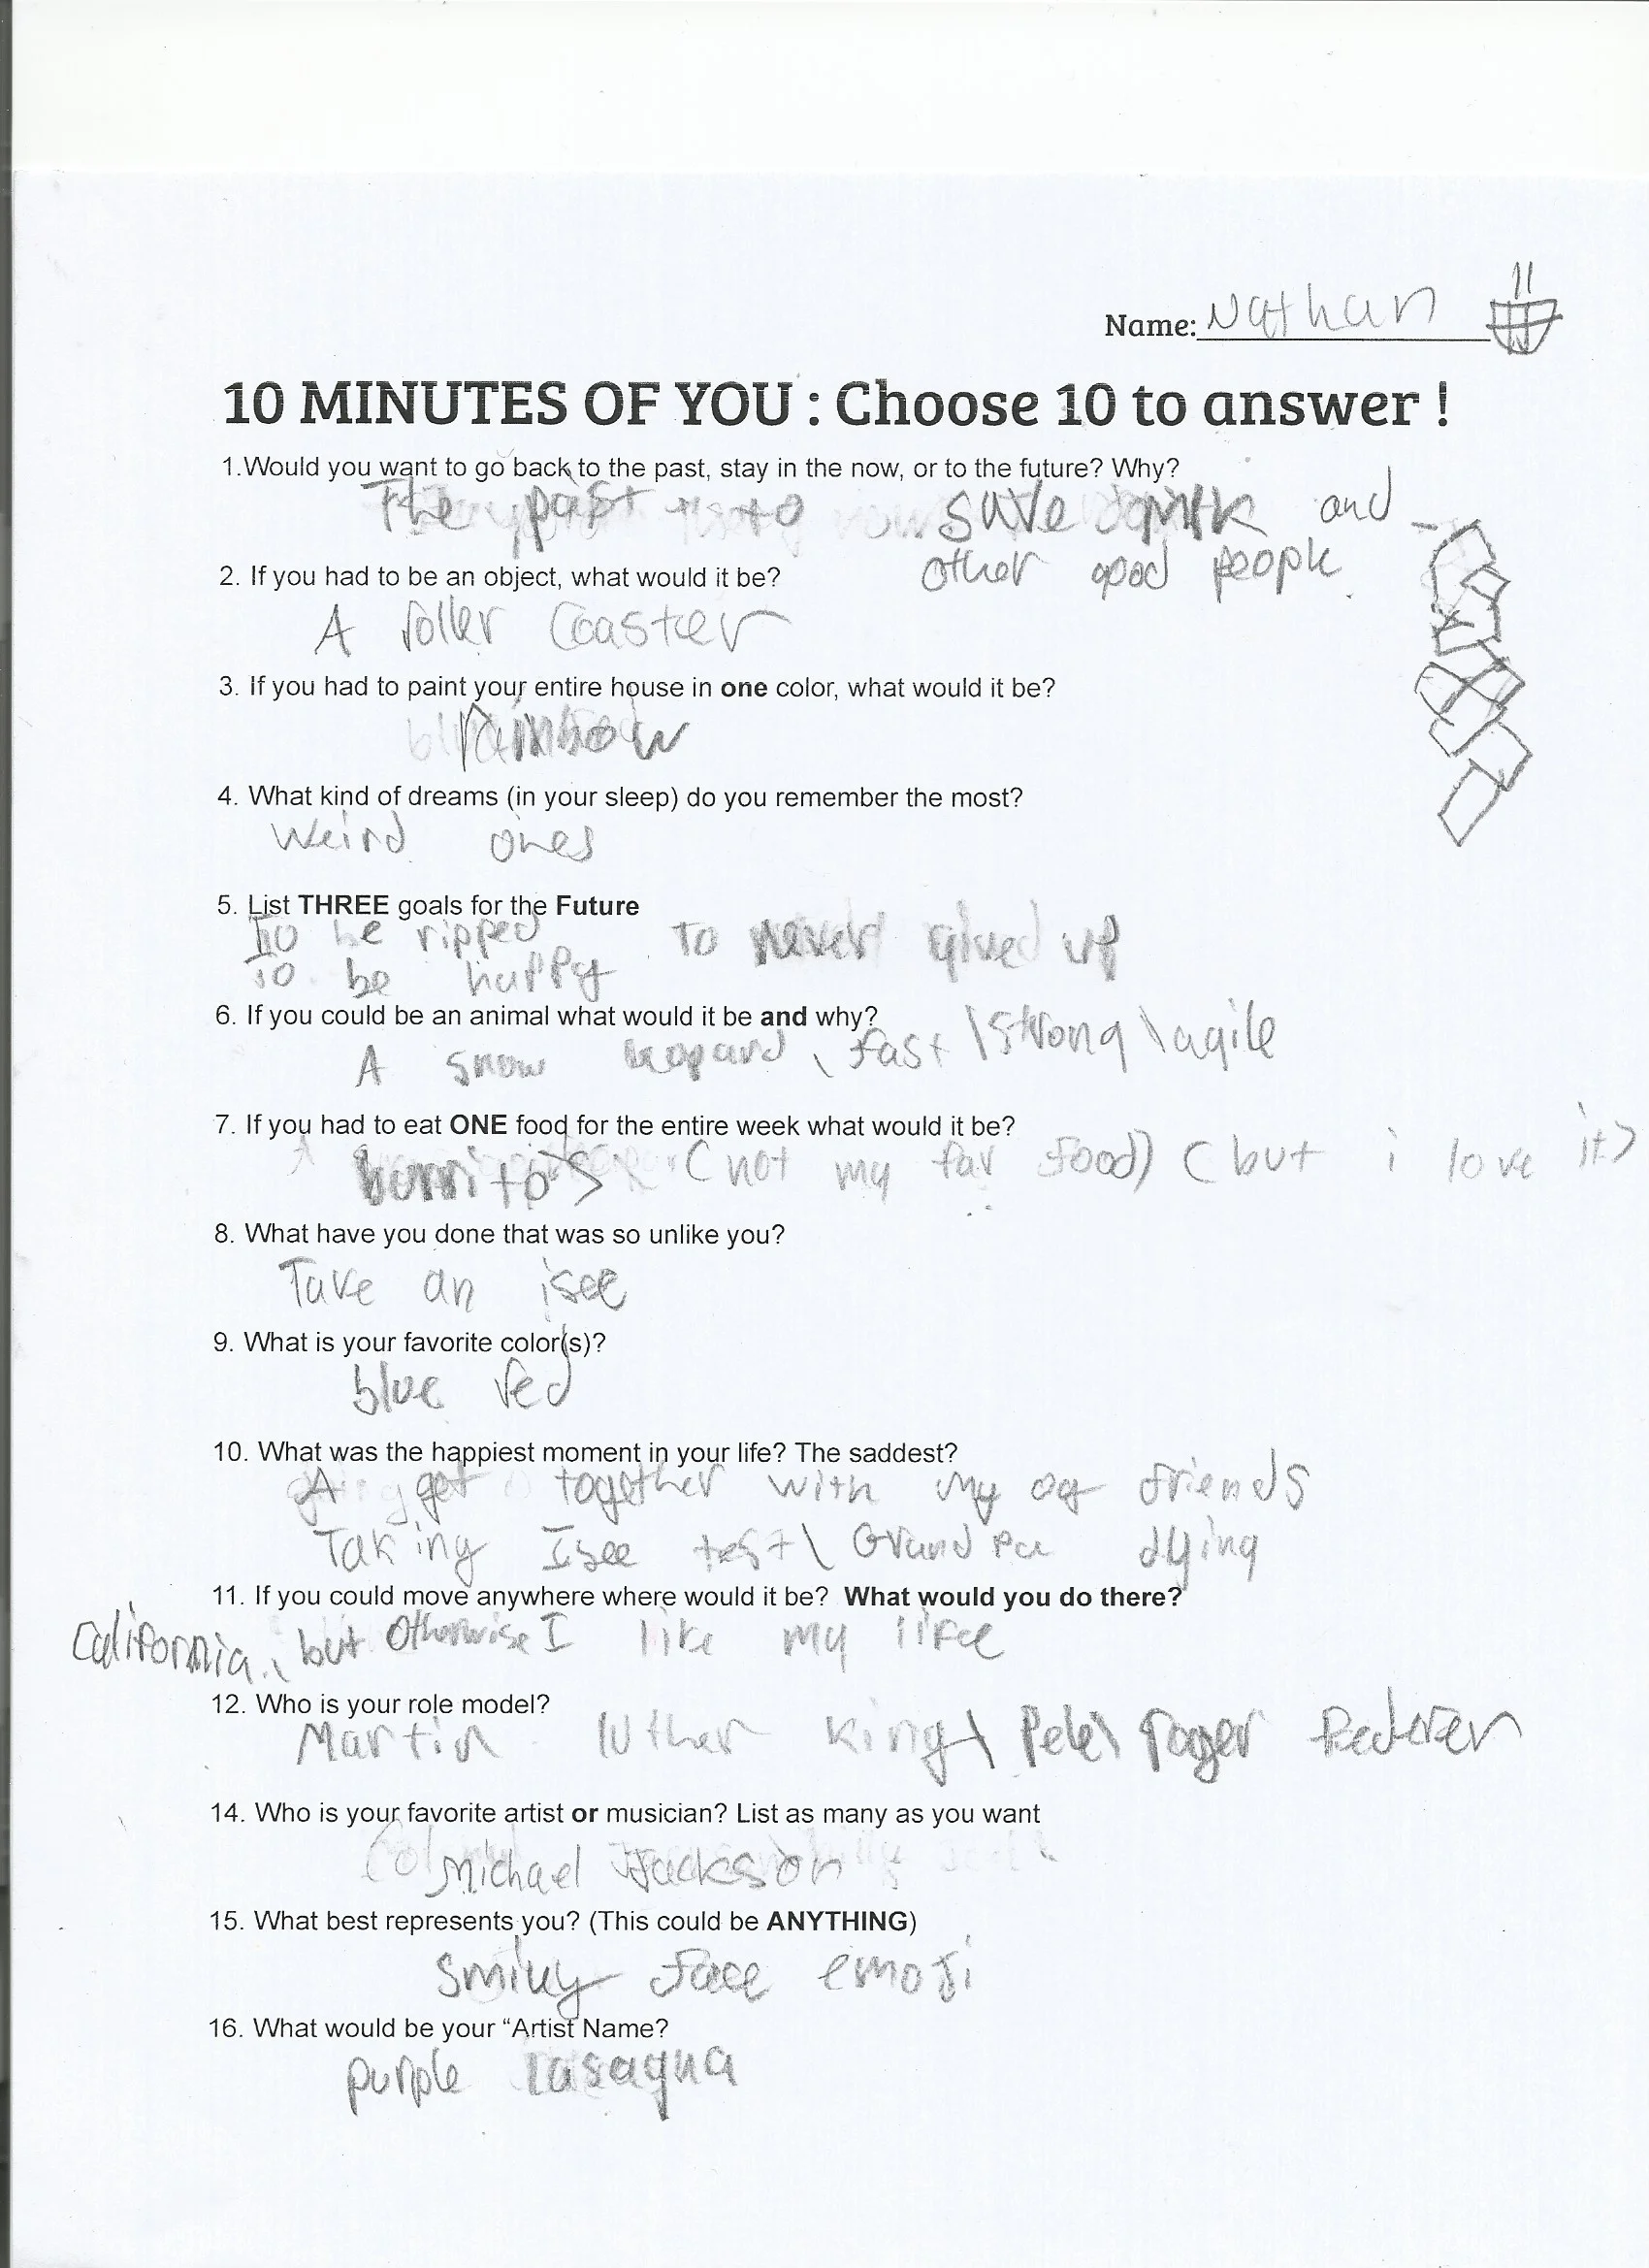 Name: Nathan
10 MINUTES OF YOU : Choose 10 to answer !
1.Would you want to go back to the past, stay in the now, or to the future? Why?
The past to save mlk and
other good people
2. If you had to be an object, what would it be?
A roller coaster
3. If you had to paint your entire house in one color, what would it be?
rainbow
4. What kind of dreams (in your sleep) do you remember the most?
weird ones
5. List THREE goals for the Future
To be ripped To never up
To be happy
6. If you could be an animal what would it be and why?
A snow leopard \ fast \ strong \ agile
7. If you had to eat ONE food for the entire week what would it be?
burritos (not my fav food) (but i love it)
8. What have you done that was so unlike you?
Take an isee
9. What is your favorite color(s)?
blue red
10. What was the happiest moment in your life? The saddest?
A get together with my og friends
Taking Isee test \ Grandpa dying
11. If you could move anywhere where would it be? What would you do there?
California, but otherwise I like my life
12. Who is your role model?
Martin luther king \ Pele \ roger Federer
14. Who is your favorite artist or musician? List as many as you want
Michael Jackson
15. What best represents you? (This could be ANYTHING)
smiley face emoji
16. What would be your “Artist Name?
purple lasagna